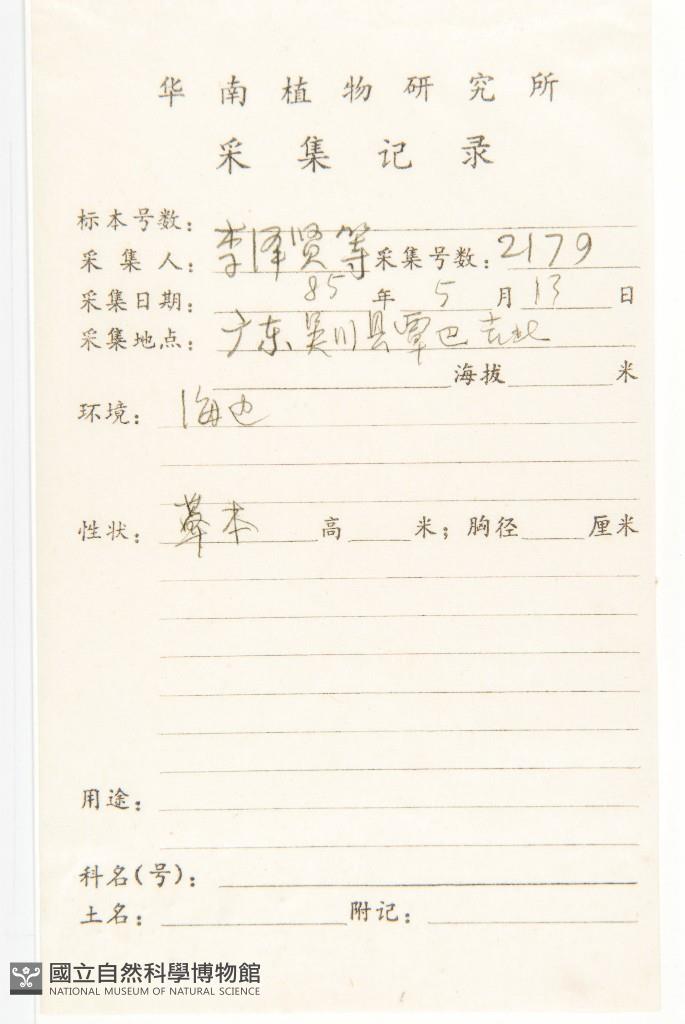 华南植物研究所
采集记录
标本号数：
采集人：李泽贤等 采集号数：2179
采集日期：85年5月13日
采集地点：广东吴川县覃巴吉兆
海拔 米
环境：海边
性状：草本 高 米；胸径 厘米
用途：
科名(号)：
土名： 附记：
國立自然科學博物館
NATIONAL MUSEUM OF NATURAL SCIENCE